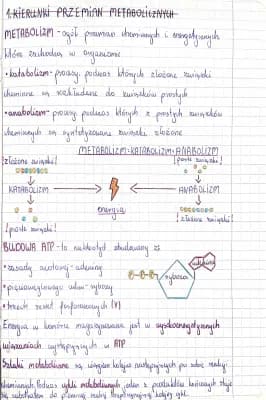 1. KIERUNKI PRZEMIAN METABOLICZNYCH
METABOLIZM - ogół przemian chemicznych i energetycznych
które zachodzą w organizmie
• katabolizm - procesy, podczas których złożone związki
chemiczne są rozkładane do związków prostych
• anabolizm - procesy, podczas których z prostych związków
chemicznych są syntetyzowane związki złożone
METABOLIZM = KATABOLIZM + ANABOLIZM
złożone związki! proste związki!
KATABOLIZM ANABOLIZM
energia
proste związki! złożone związki!
BUDOWA ATP - to nukleotyd zbudowany z:
• zasady azotowej - adeniny
• pięciowęglowego cukru - rybozy
• trzech reszt fosforanowych (P)
P P P ryboza adenina
Energia w komórce magazynowana jest w wysokoenergetycznych
wiązaniach występujących w ATP
Szlaki metaboliczne są ciągiem kolejno następujących po sobie reakcji
chemicznych. Podczas cykli metabolicznych jeden z produktów końcowych staje
się substratem do pierwszej reakcji rozpoczynającej kolejny cykl.